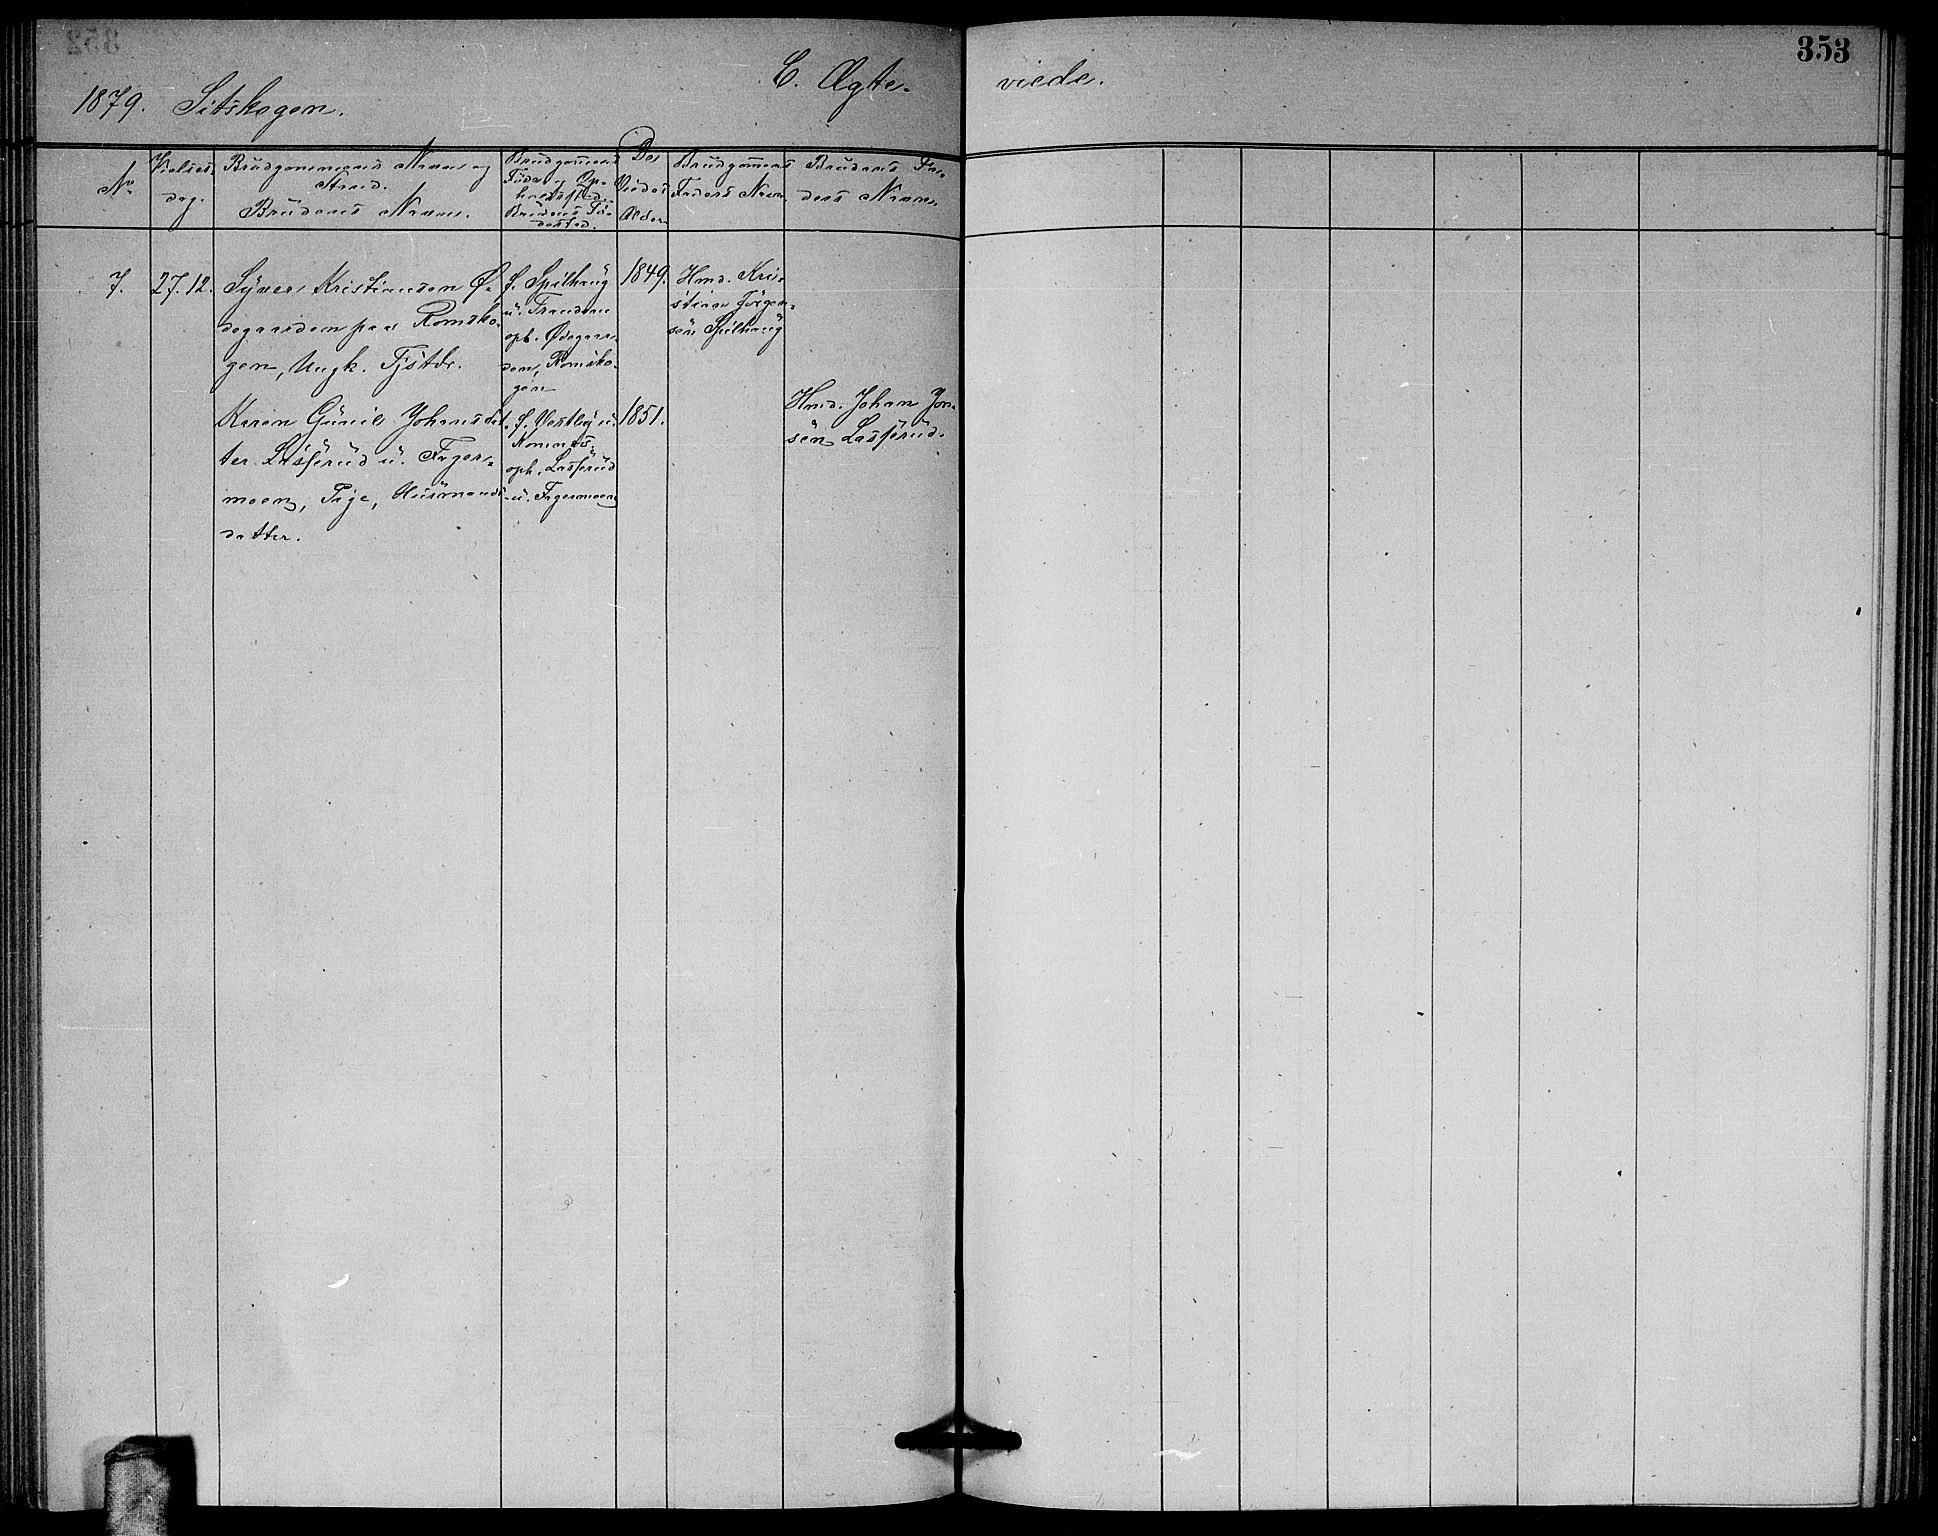 353
1879. Sitskogen.
C. Ægte-
viede.
No
Vielses
dag.
Brudgommens Navn og
Stand.
Brudens Navn.
Brudgommens
Føde og Op-
holdssted.
Brudens Fø-
dested.
De
Viedes
Alder
Brudgommens
Faders Navn
Brudens Fa-
ders Navn.
7.
27.12.
Syver Kristiansen Ø-
degaarden paa Romsko-
gen, Ungk. Tjstdr.
f. Spilhaug
u.
oph. Ødegaar-
den, Romsko-
gen
1849.
Hmd. Kri-
stian Jörgen-
sen Spilhaug
Karen Gunil Johansdat-
ter Lasserud u. Fager-
moen, Pige, Husmands-
datter.
f. Vestby u.
Komnæs.
oph. Lasserud
u. Fagermoen
1851.
Hmd. Johan Jon-
sen Lasserud.